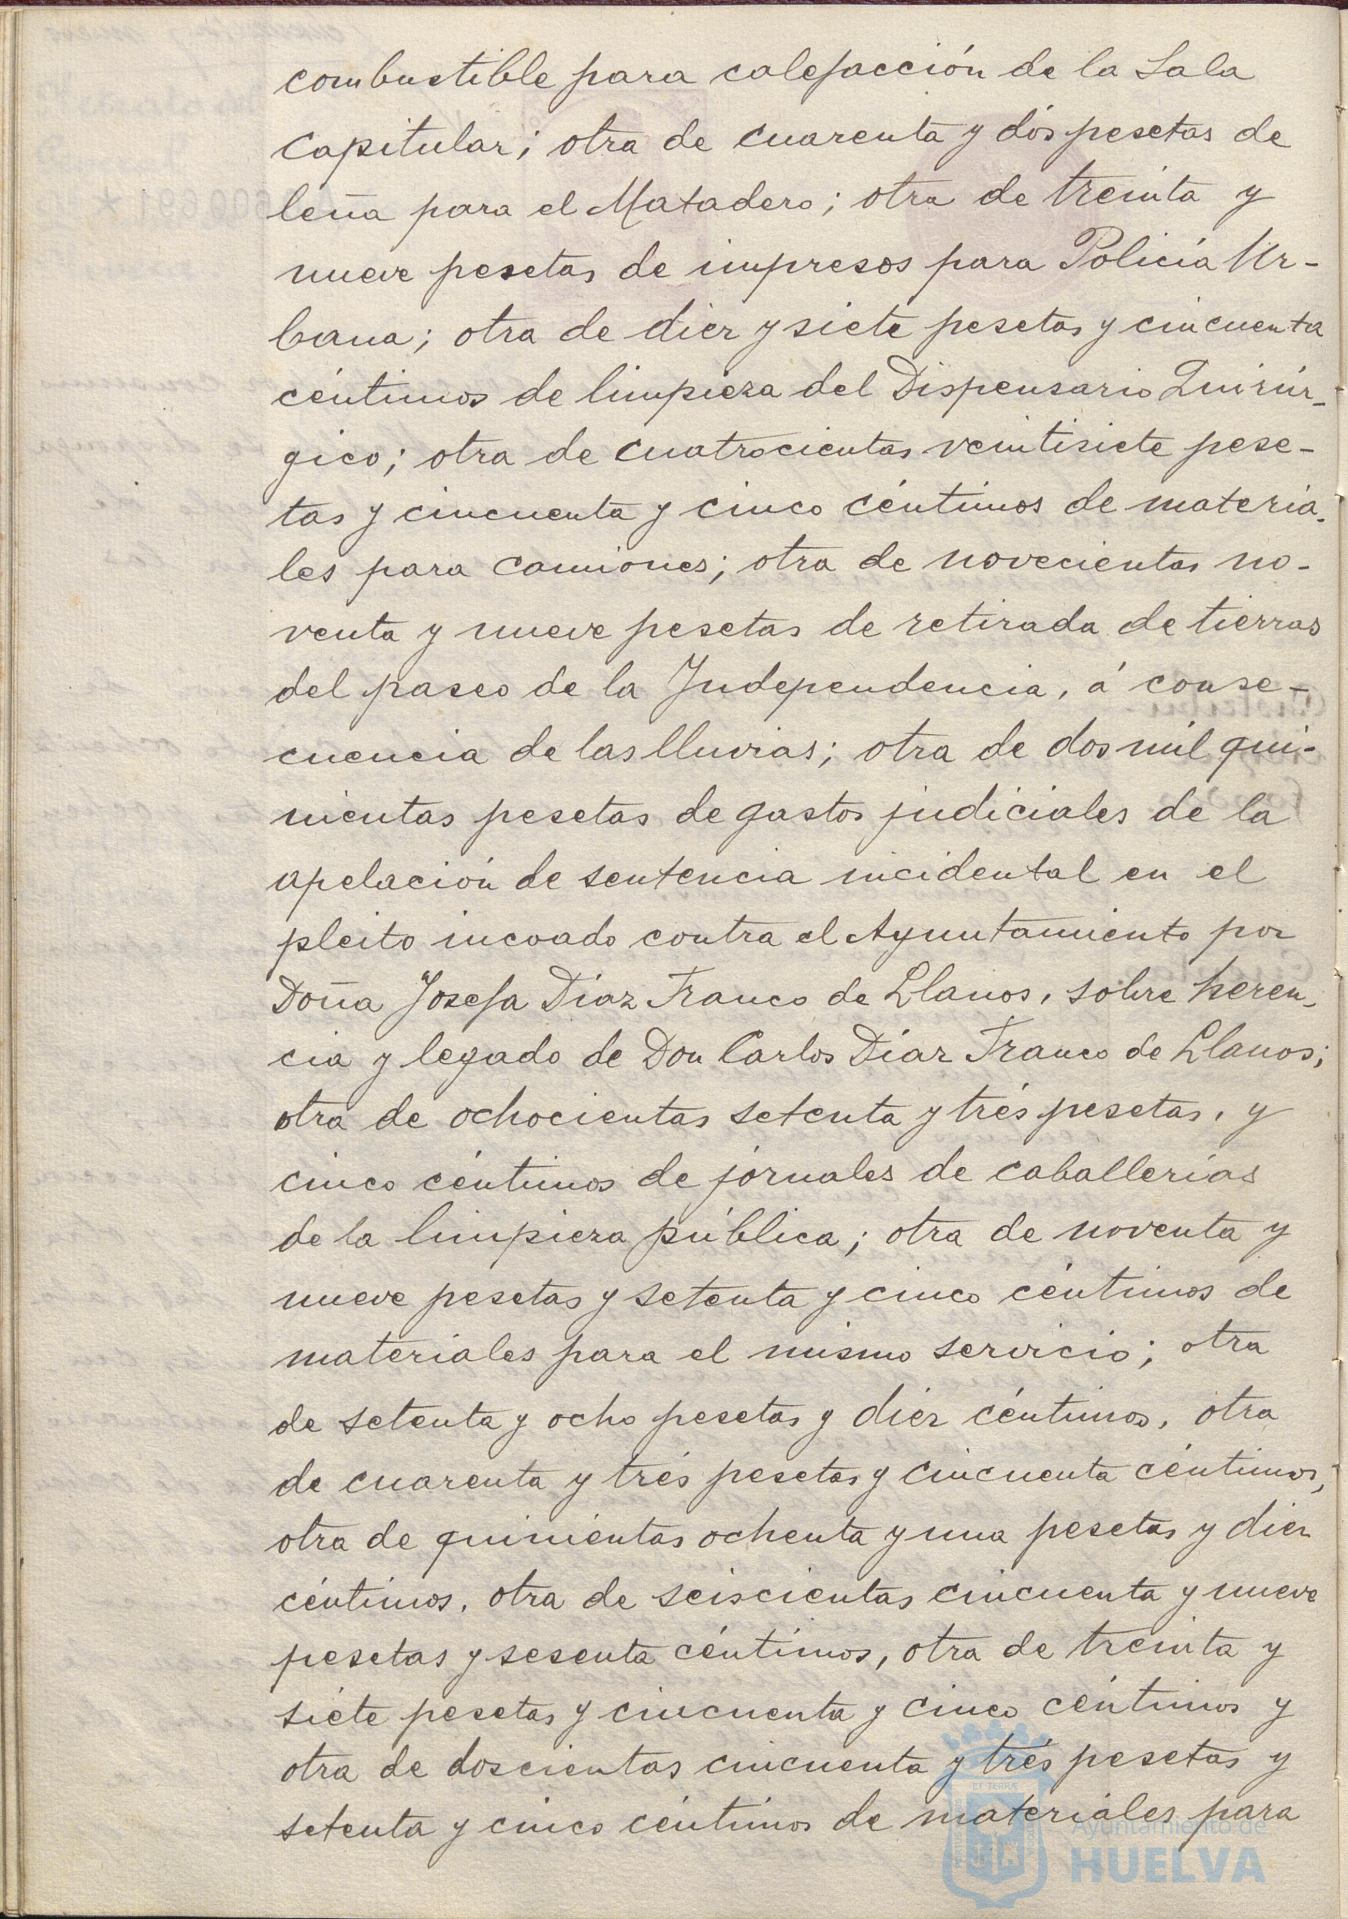 combustible para calefacción de la Sala
Capitular; otra de cuarenta y dós pesetas de
leña para el Matadero; otra de treinta y
nueve pesetas de impresos para Policía Ur-
bana; otra de diez y siete pesetas y cincuenta
céntimos de limpieza del Dispensario Quirúr-
gico; otra de cuatrocientas veintisiete pese-
tas y cincuenta y cinco céntimos de materia-
les para camiones; otra de novecientas no-
venta y nueve pesetas de retirada de tierras
del paseo de la Independencia, á conse-
cuencia de las lluvias; otra de dos mil qui-
nientas pesetas de gastos judiciales de la
apelación de sentencia incidental en el
pleito incoado contra el Ayuntamiento por
Doña Josefa Díaz Franco de Llanos, sobre heren-
cia y legado de Don Carlos Díaz Franco de Llanos;
otra de ochocientas setenta y trés pesetas, y
cinco céntimos de jornales de caballerías
de la limpieza pública; otra de noventa y
nueve pesetas y setenta y cinco céntimos de
materiales para el mismo servicio; otra
de setenta y ocho pesetas y diéz céntimos, otra
de cuarenta y trés pesetas y cincuenta céntimos,
otra de quinientas ochenta y una pesetas y diez
céntimos, otra de seiscientas cincuenta y nueve
pesetas y sesenta céntimos, otra de treinta y
siete pesetas y cincuenta y cinco céntimos y
otra de doscientas cincuenta y trés pesetas y
setenta y cinco céntimos de materiales para
Ayuntamiento de
HUELVA